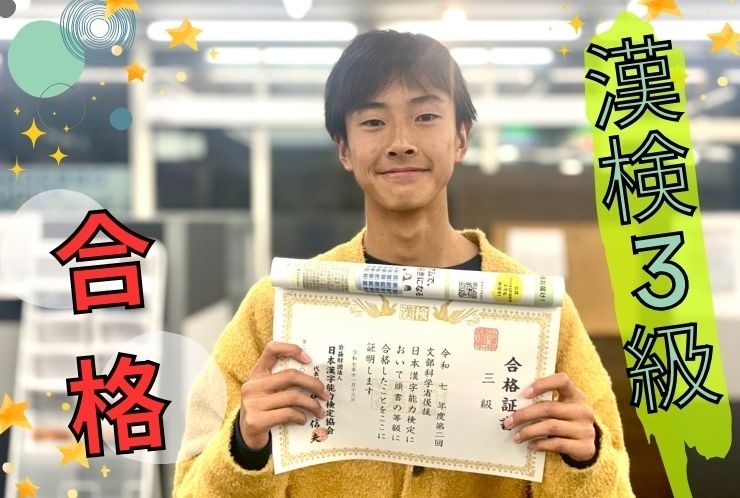 漢検3級
合格
漢検
合格証書
三級
令和七年度第二回
文部科学省後援
日本漢字能力検定に
おいて頭書の等級に
合格したことをここに
証明します
令和七年十一月十六日
公益財団法人
日本漢字能力検定協会
代表